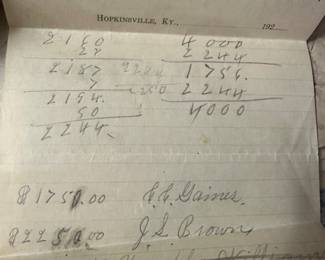 HOPKINSVILLE, KY., 192
2160 4000
27 2244
2187 1756.
7 2244
2194. 4000
50
2244.
$1750.00 E.E. Gaines.
$2250.00 J.S. Brown